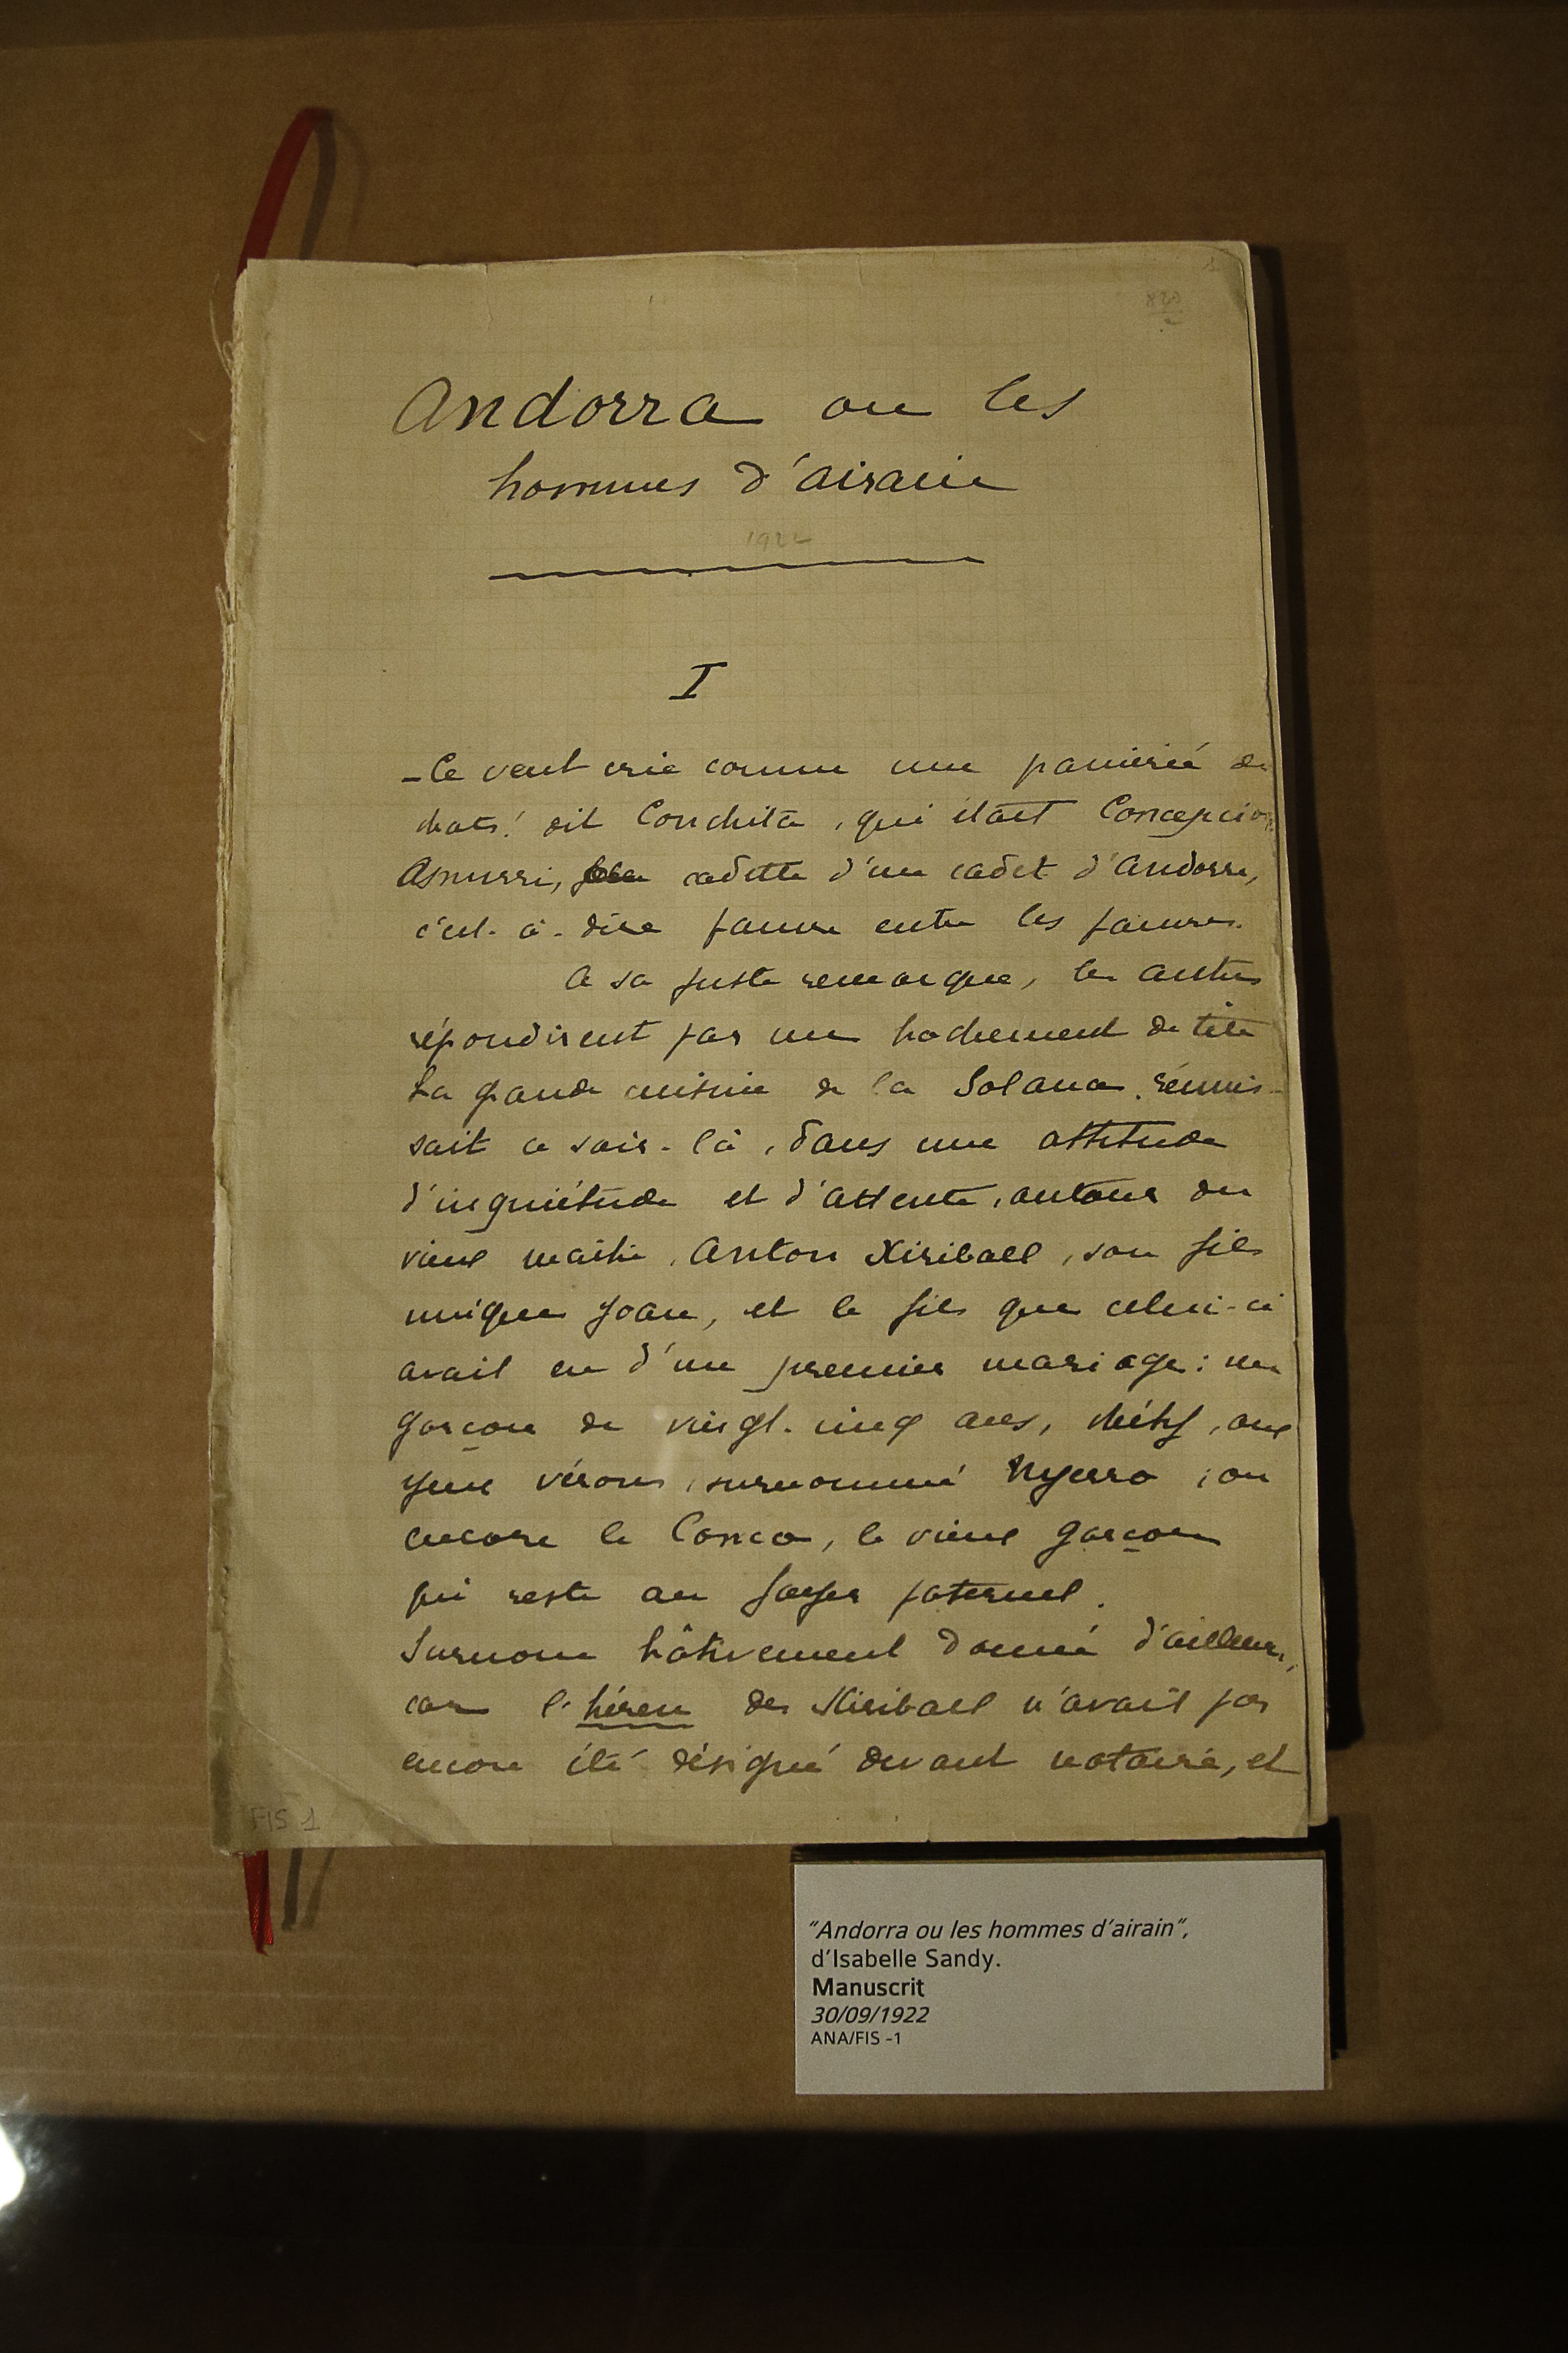 Andorra ou les
hommes d'airain
1922
I
– Le vent crie comme une panierée de
chats! dit Conchita, qui était Concepcion
Asnurri, cadette d'un cadet d'Andorre,
c'est-à-dire pauvre entre les pauvres.
A sa juste remarque, les autres
répondirent par un hochement de tête
La grande cuisine de la Solana réunis-
sait ce soir-là, dans une attitude
d'inquiétude et d'attente, autour du
vieux maître, Anton Xiriball, son fils
unique Joan, et le fils que celui-ci
avait eu d'un premier mariage: un
garçon de vingt-cinq ans, chétif, aux
yeux vérons, surnommé Nyerro, ou
encore le Conco, le vieux garçon
qui reste au foyer paternel.
Surnom hâtivement donné d'ailleurs,
car l'héreu des Xiriball n'avait pas
encore été désigné devant notaire, et
FIS 1
"Andorra ou les hommes d'airain",
d'Isabelle Sandy.
Manuscrit
30/09/1922
ANA/FIS -1